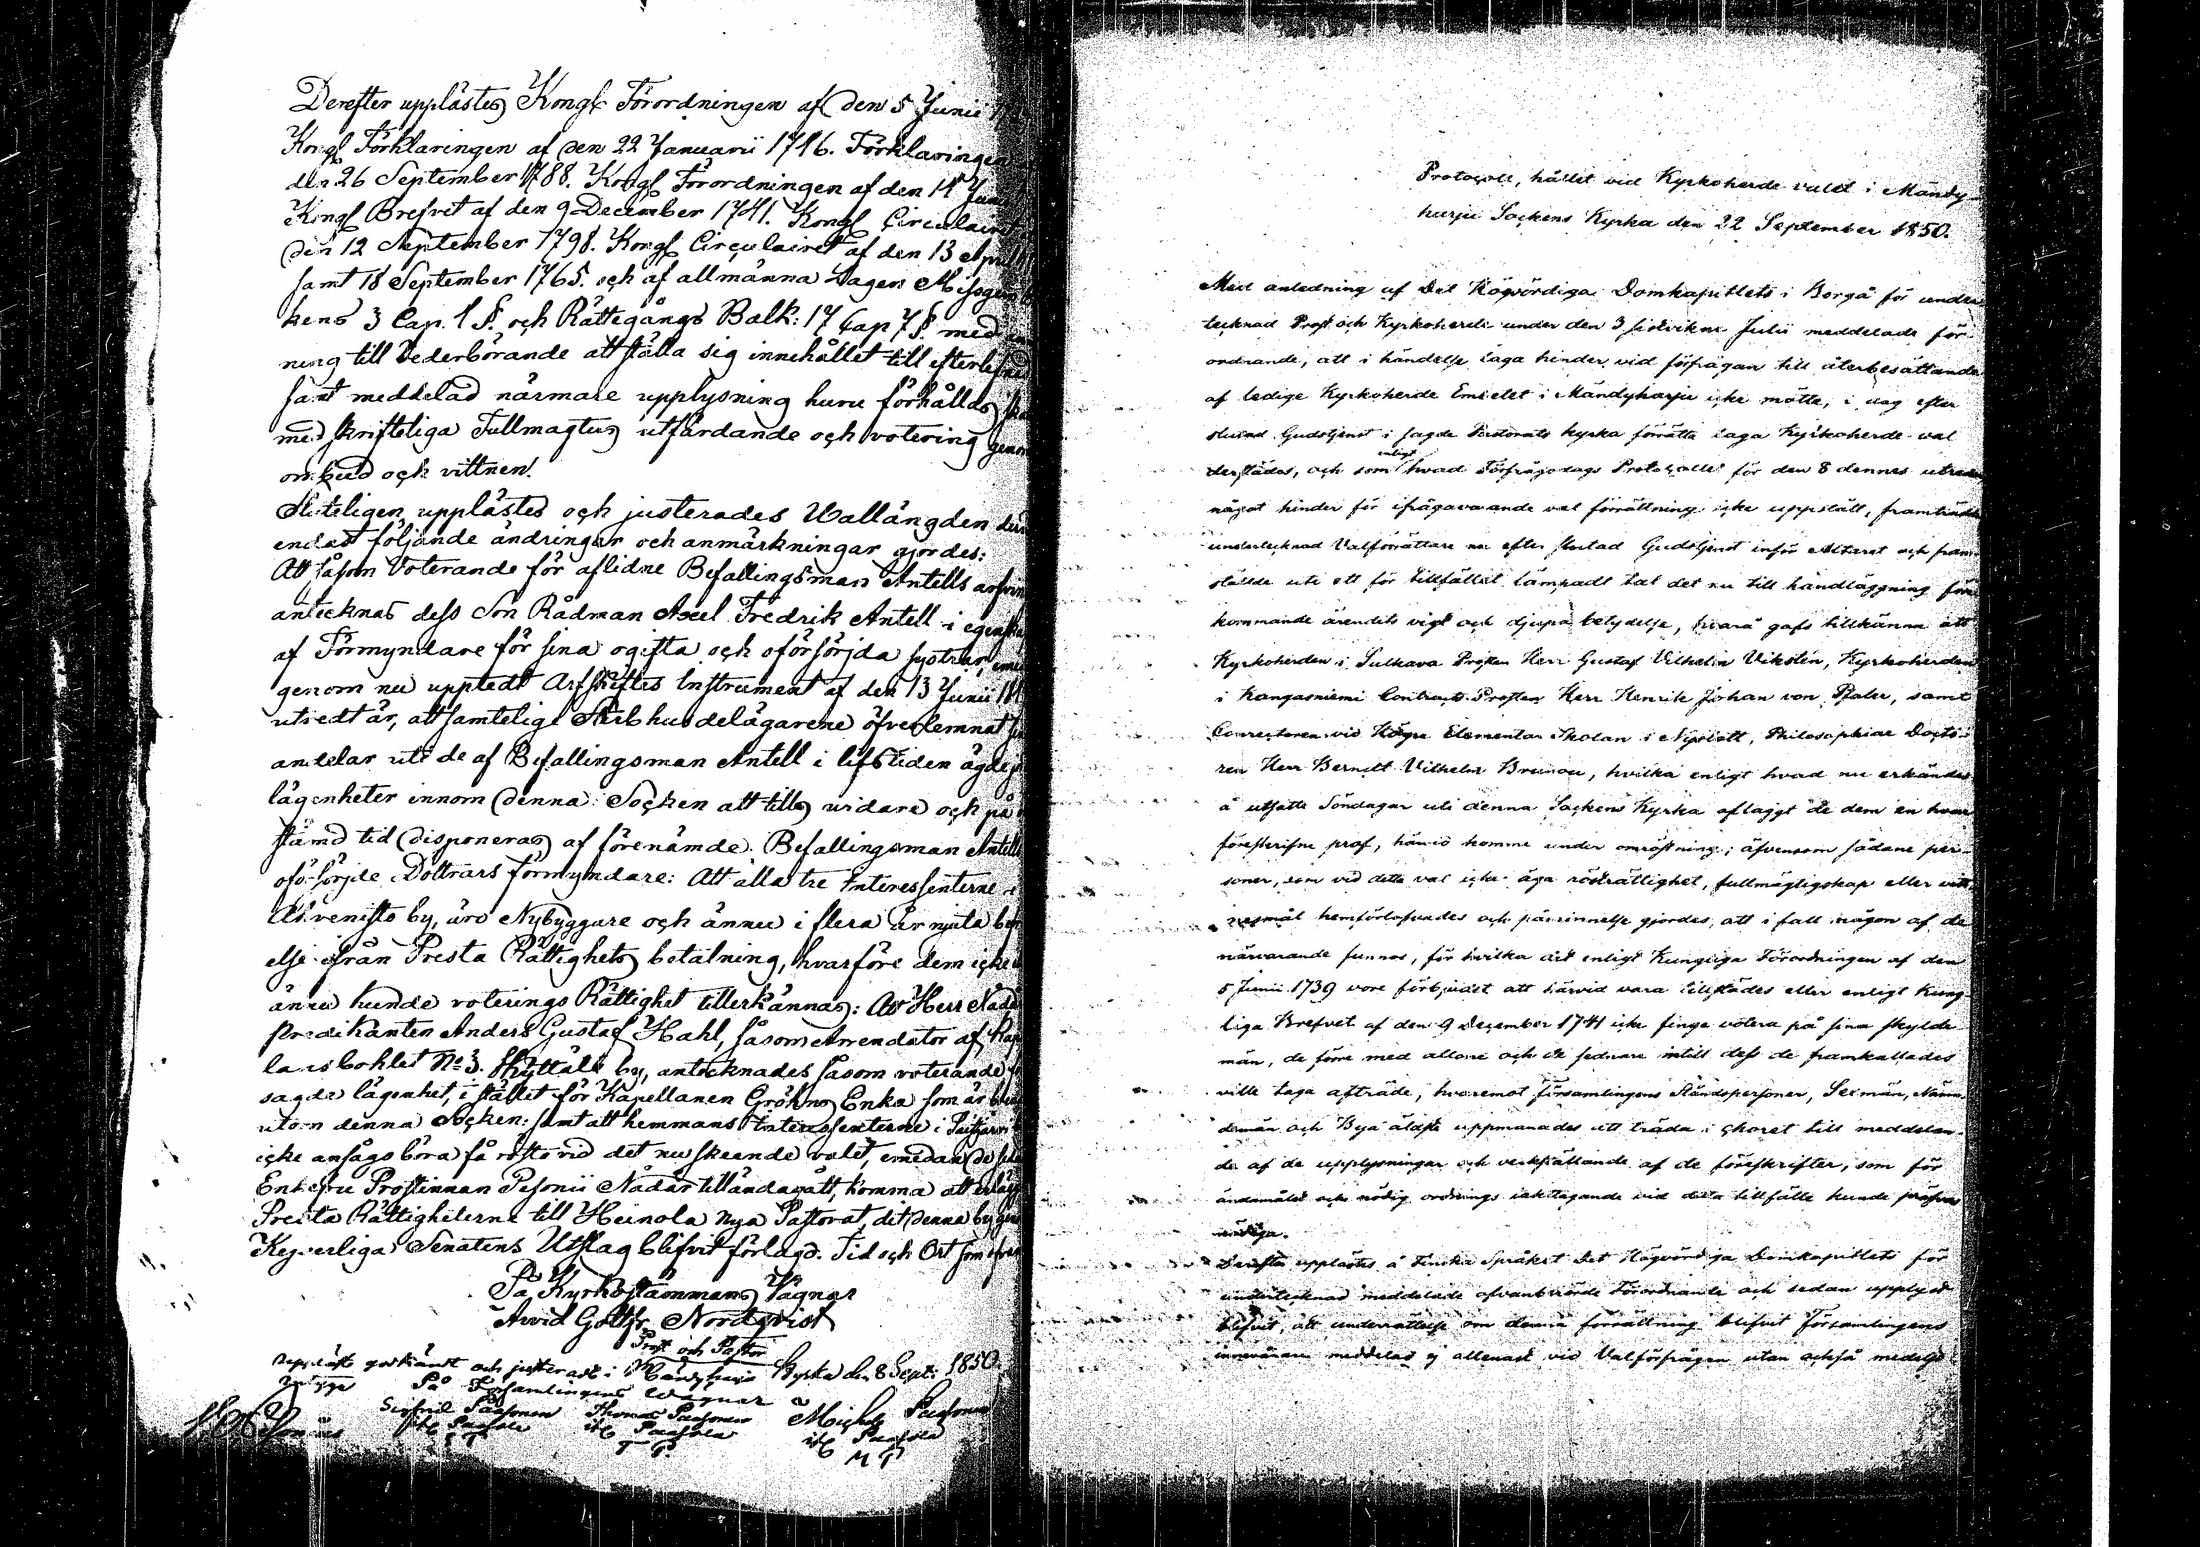 Derefter upplästes Kongl Förordningen af den 5 Junii
Kongl Förklaringen af den 22 Januarii 1746. Förklaringen
den 26 September 1788. Kongl Förordningen af den 14 Junii
Kongl Brefvet af den 9 December 1741. Kongl Circulairet
den 12 September 1798. Kongl Circulairet af den 13 April
samt 18 September 1765. och af allmänna Lagen
kens 3 Cap. 1 §. och Rättegångs Balk: 17 Cap 7 §. med
ning till Vederbörande att ställa sig innehållet till efterlefnad
samt meddelad närmare upplysning huru förhållas
med skriftliga Fullmagters utfärdande och votering genom
ombud och vittnen!
Sluteligen upplästes och justerades Vallängden
endast följande ändringar och anmärkningar gjordes:
Att såsom Voterande för aflidne Befallingsman Antells
antecknas dess Son Rådman Axel Fredrik Antell i egenskap
af Förmyndare för sina ogifta och oförsörjda systrar,
genom nu uppteedt Arfskiftes Instrument af den 13 Junii
utredt är, att samtelige Sterbhusdelägarene öfverlemnat
andelar uti de af Befallingsman Antell i lifstiden ägde
lägenheter innom denna Socken att tills vidare och på
stämd tid disponeras af förenämde Befallingsman Antells
oförsörjde Döttrars förmyndare: Att alla tre Interessenterne
by, äro Nybyggare och ännu i flera år njuta
else ifrån Presta Rättighets betalning, hvarföre dem icke
ännu kunde voterings Rättighet tillerkännas: Att Herr Nådårs
predikanten Anders Gustaf Hahl, såsom Arrendator af
lansbohlet No 3. by, antecknades såsom voterande
sagde lägenhet, i stället för Kapellanen Gröhns Enka som är
utom denna Socken: samt att hemmans Interessenterne i
icke ansågs böra få rösta vid det nu skeende valet, emedan de
Enkefru Prostinnan Pesonii Nådår tilländagått, komma att erlägga
Presta Rättigheterne till Heinola nya Pastorat, dit denna by genom
Kejserliga Senatens Utslag blifvit förlagd. Tid och Ort som ofvan
På Kyrkostämmans Vägnar
Arvid Gottfr. Nordqvist
Prost och Pastor
Uppläst godkändt och justeradt i Mändyharju Kyrka den 8 Sept: 1850.
På Församlingens Wägnar
Sigfrid Paasonen Thomas Paasonen Michel Paasonen

Protocoll, hållet vid Kyrkoherde valet i Mändy-
harju Sockens Kyrka den 22 September 1850.
Med anledning af Det Högvördiga Domkapitlets i Borgå för under
tecknad Prost och Kyrkoherde under den 3 sistvikne Julii meddelade för-
ordnande, att i händelse laga hinder vid förfrågan till återbesättande
af ledige Kyrkoherde Embetet i Mändyharju icke mötte, i dag efter
slutad Gudstjenst i sagde Pastorats kyrka förrätta laga Kyrkoherde val
derstädes, och som enligt hvad Förfrågodags Protocollet för den 8 dennes utreder
något hinder för ifrågavarande val förrättning icke uppstått, framträdde
undertecknad Valförrättare nu efter slutad Gudstjenst inför Altaret och fram-
stälde uti ett för tillfället lämpadt tal det nu till handläggning före
kommande ärendets vigt och djupa betydelse, hvarå gafs tillkänna att
Kyrkoherden i Sulkava Prosten Herr Gustaf Vilhelm Vikstén, Kyrkoherden
i Kangasniemi Contracts Prosten Herr Henrik Johan von Pfaler, samt
Conrectoren vid Högre Elementar Skolan i Nyslott, Philosophiae Docto-
ren Herr Berndt Vilhelm Brunou, hvilka enligt hvad nu erkändes
å utsatte Söndagar uti denna Sockens Kyrka aflaggt de dem en hvar
föreskrifne prof, härvid komme under omröstning; äfvensom sådane per-
soner, som vid detta val icke äga rösträttighet, fullmägtigskap eller vitt-
nesmål hemförlofvades och påminnelse gjordes, att i fall någon af de
närvarande funnos, för hvilka det enligt Kungliga Förordningen af den
5 Junii 1739 vore förbjudet att härvid vara tillstädes eller enligt Kung-
liga Brefvet af den 9 December 1741 icke finge votera på sina skylde-
män, de förre med allone och de sednare intill dess de framkallades
ville taga afträde, hvaremot församlingens Ståndspersoner, Sexmän, Nämn-
demän och Byä äldste uppmanades att träda i choret till meddelan-
de af de upplysningar och verkställande af de föreskrifter, som för
ändamålet och nödig ordnings iakttagande vid detta tillfälle kunde pröfvas
nödiga.
Derefter upplästes å Finska Språket Det Högvördiga Domkapitlets för
undertecknad meddelade ofvanberörde Förordnande och sedan upplyst
blifvit, att underrättelse om denna förrättning blifvit Församlingens
innevånare meddelad ej allenast vid Valförfrågan utan också medelst